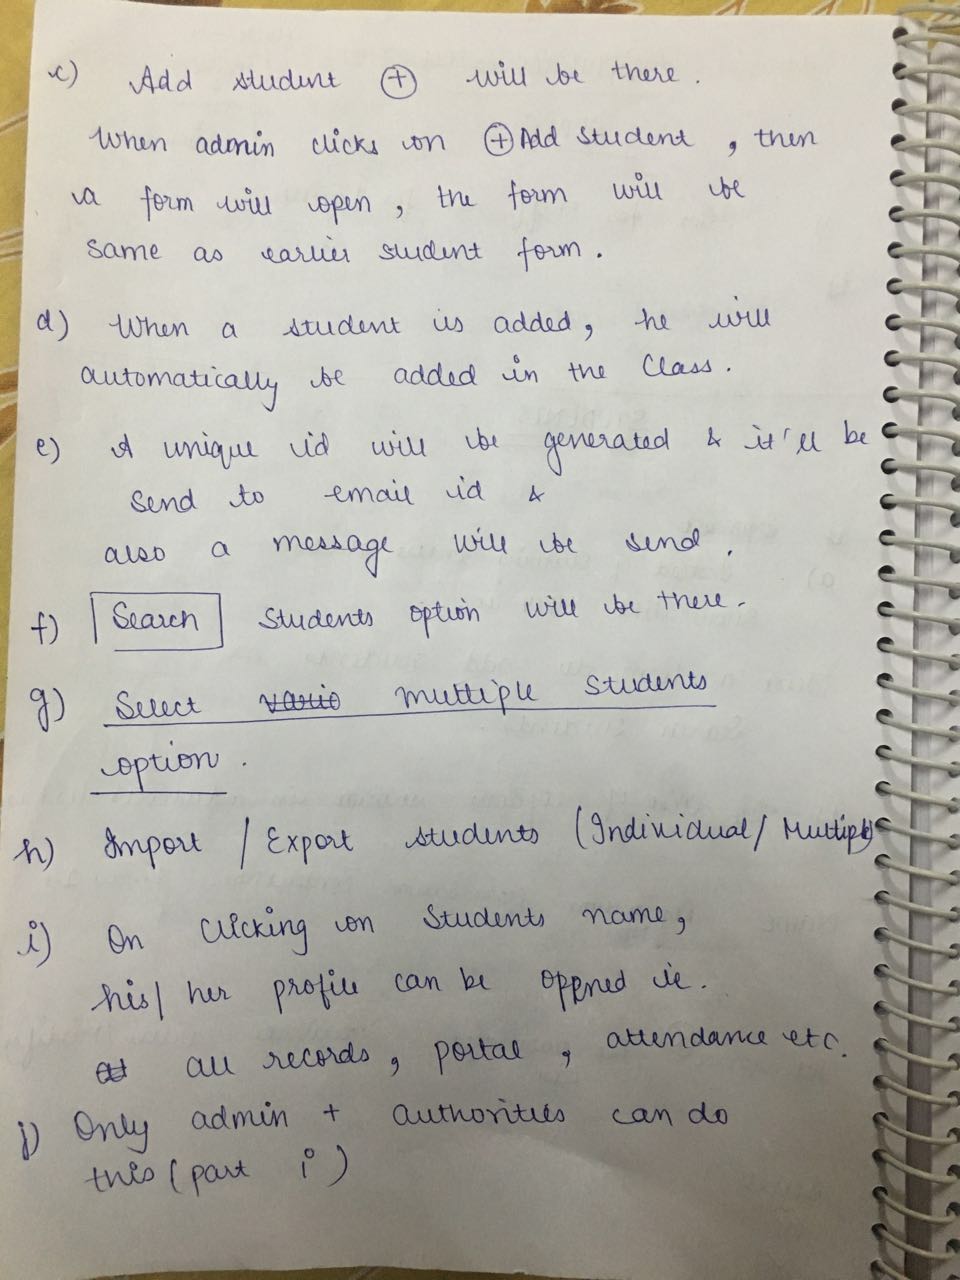 c) Add student ⊕ will be there.
When admin clicks on ⊕ Add Student, then
a form will open, the form will be
same as earlier student form.
d) When a student is added, he will
automatically be added in the Class.
e) A unique id will be generated & it'll be
send to email id &
also a message will be send.
f) Search Students option will be there.
g) Select multiple students
option.
h) Import / Export students (Individual / Multiple)
i) On clicking on Students name,
his/ her profile can be oppned ie.
all records, portal, attendance etc.
j) Only admin + authorities can do
this (part i)